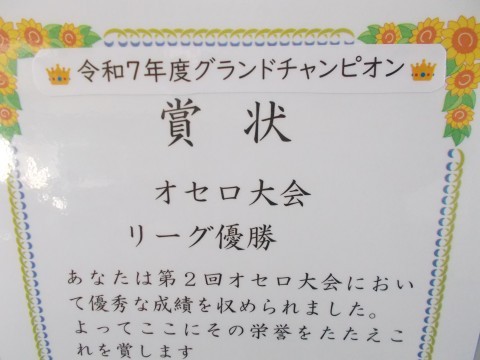 令和7年度グランドチャンピオン
賞状
オセロ大会
リーグ優勝
あなたは第2回オセロ大会におい
て優秀な成績を収められました。
よってここにその栄誉をたたえこ
れを賞します